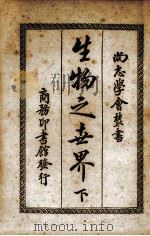 尚志學會叢書
生物之世界 下
商務印書館發行